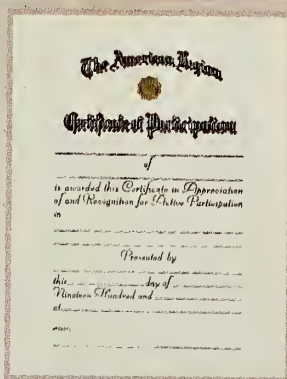 The American Legion
Certificate of Participation
of
is awarded this Certificate in Appreciation
of and Recognition for Active Participation
in
Presented by
this day of
Nineteen Hundred and
at